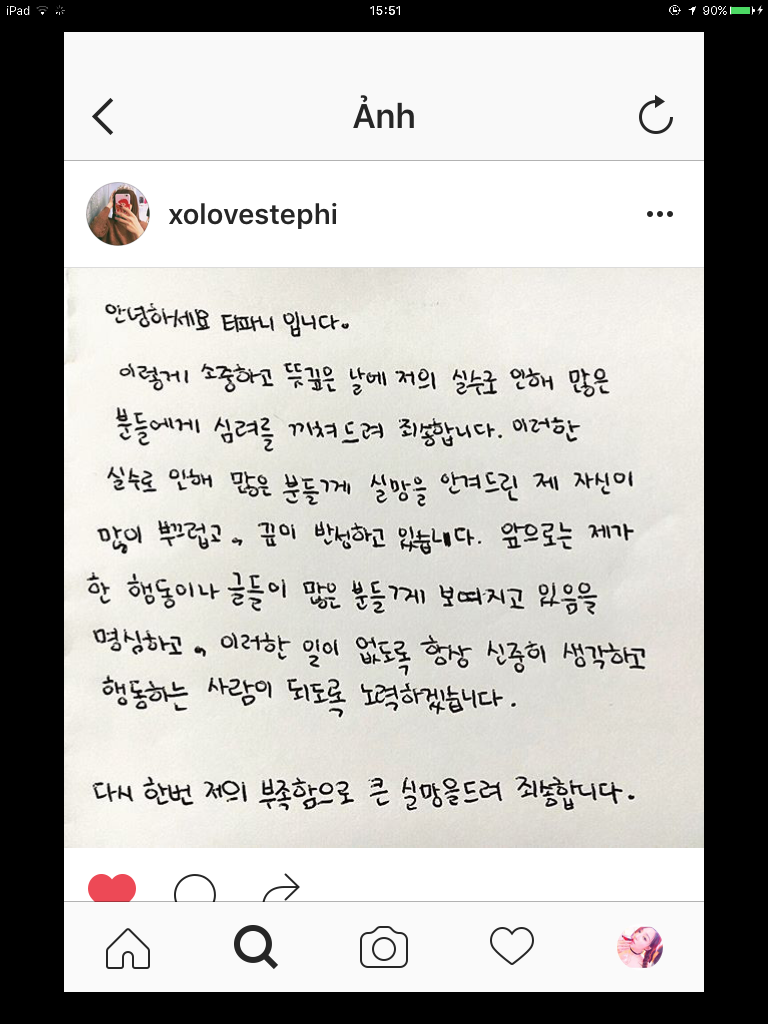 iPad 15:51 90%
Ảnh
xolovestephi
안녕하세요 티파니 입니다.
이렇게 소중하고 뜻깊은 날에 저의 실수로 인해 많은
분들에게 심려를 끼쳐드려 죄송합니다. 이러한
실수로 인해 많은 분들께 실망을 안겨드린 제 자신이
많이 부끄럽고, 깊이 반성하고 있습니다. 앞으로는 제가
한 행동이나 글들이 많은 분들께 보여지고 있음을
명심하고, 이러한 일이 없도록 항상 신중히 생각하고
행동하는 사람이 되도록 노력하겠습니다.
다시 한번 저의 부족함으로 큰 실망을드려 죄송합니다.